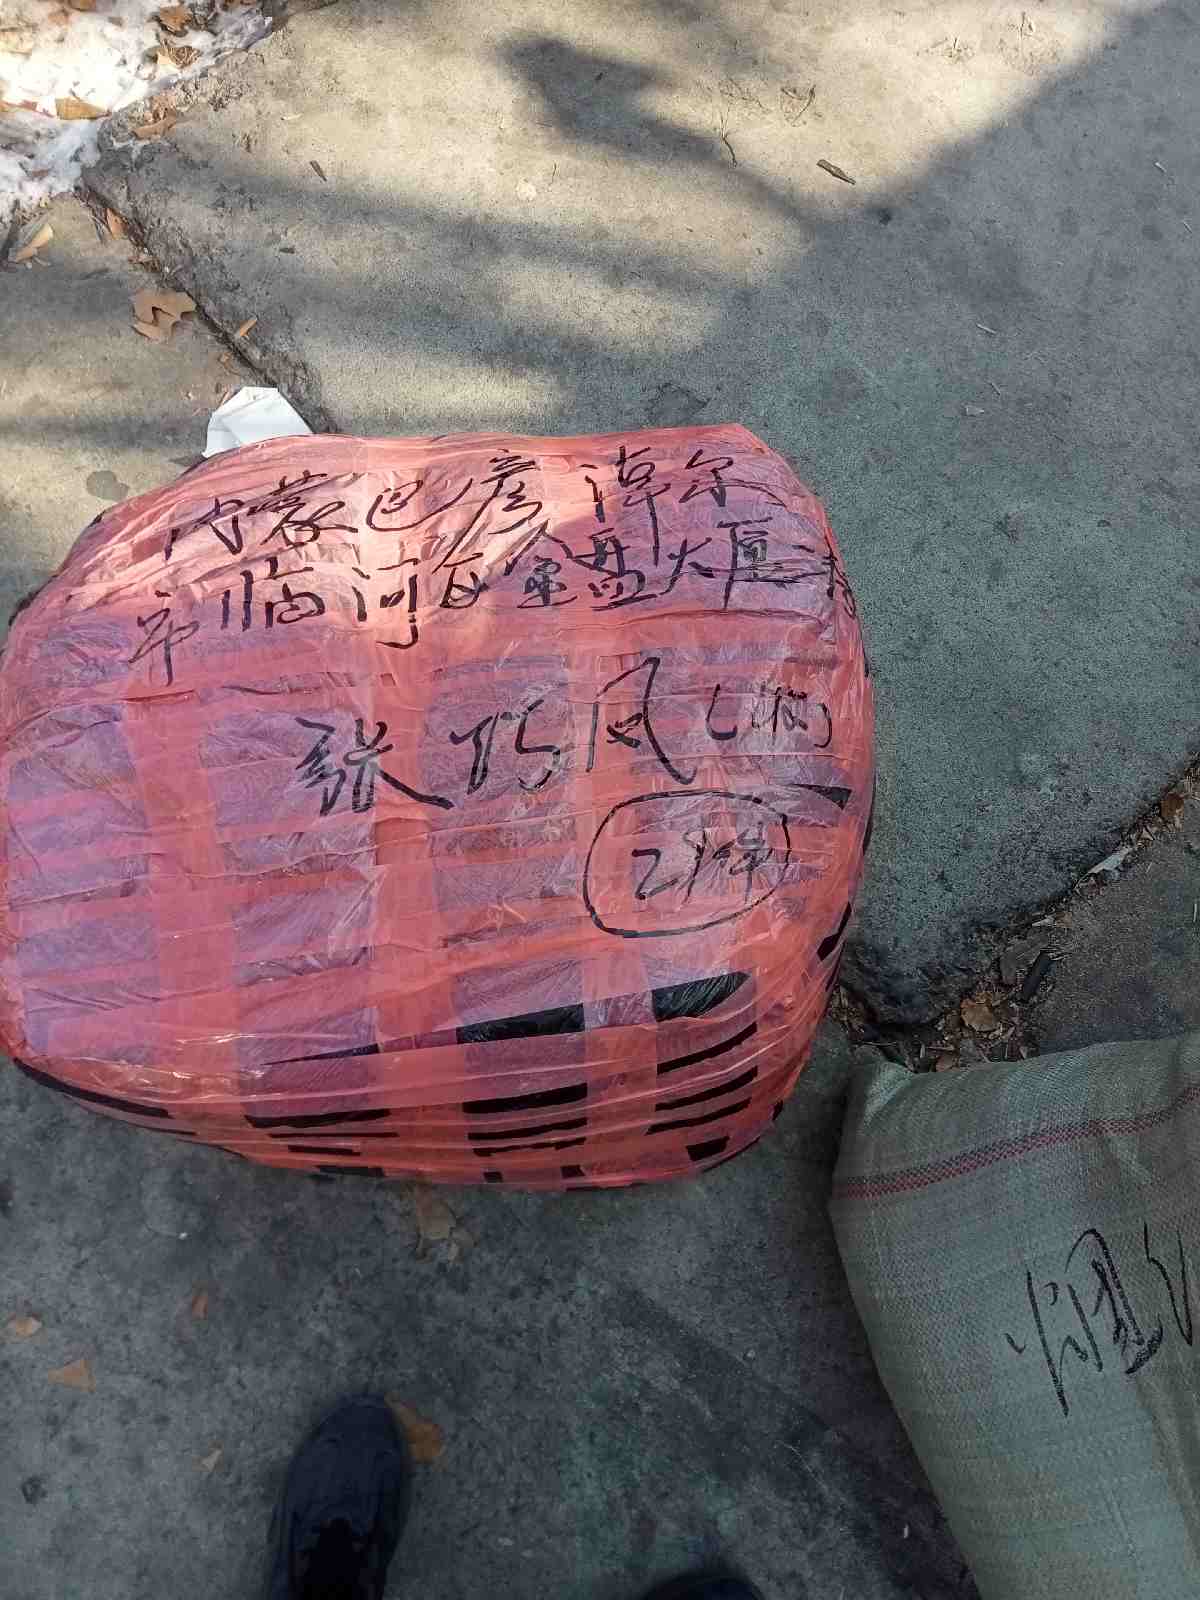 内蒙巴彦淖尔
市临河区金盘大厦
张巧凤
2件